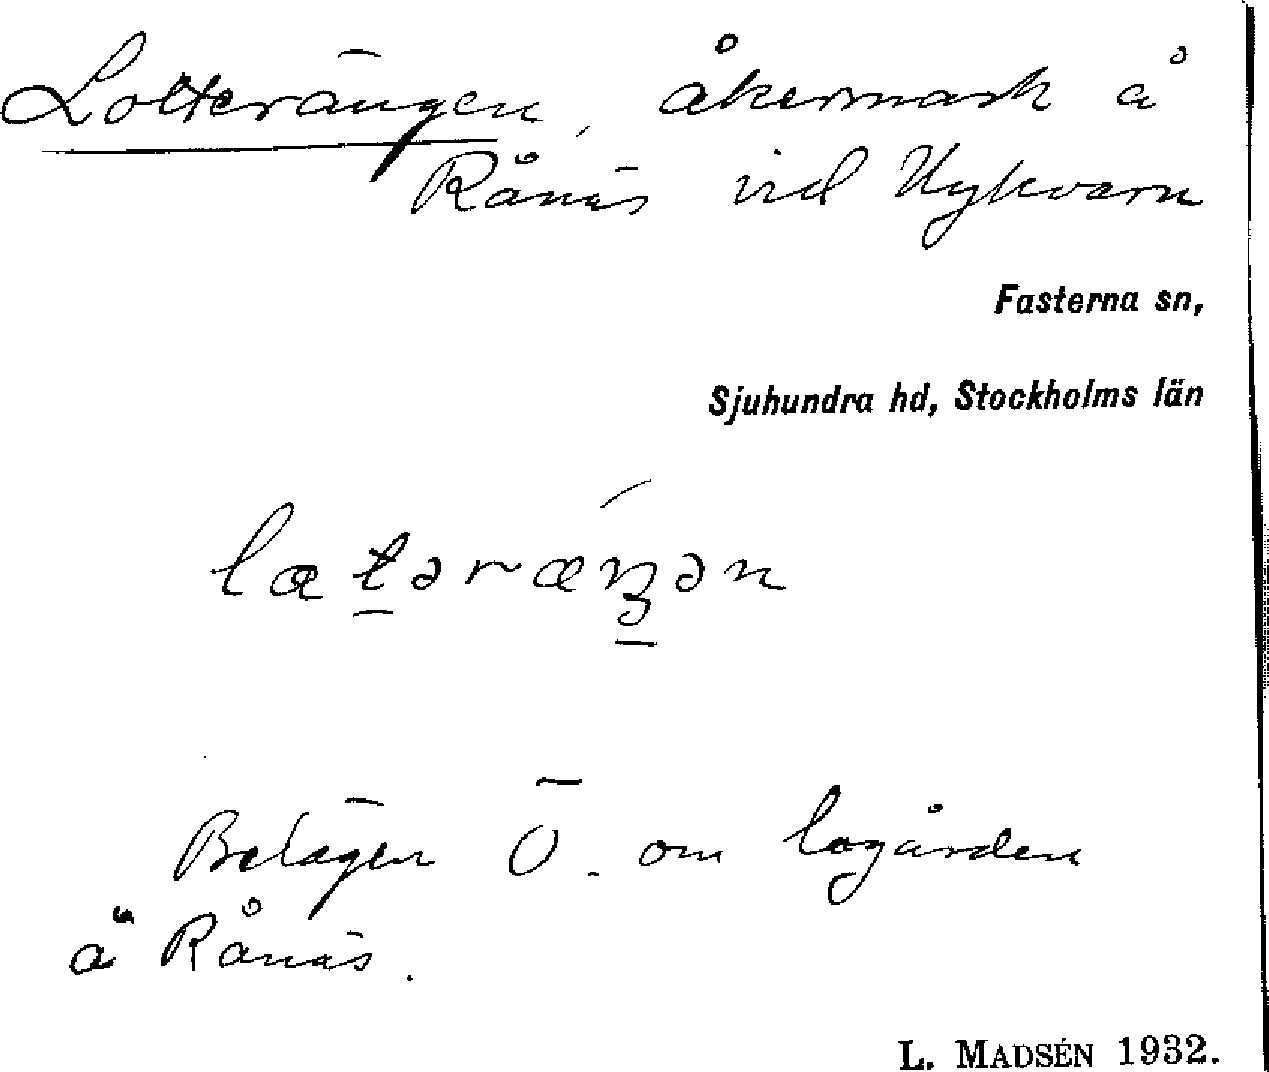 Lotterängen, åkermark å
Rånäs vid Nykvarn
Fasterna sn,
Sjuhundra hd, Stockholms län
Belägen Ö. om logården
å Rånäs.
L. MADSÉN 1932.